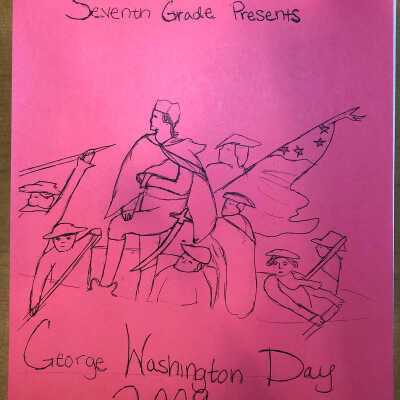 Seventh Grade Presents
George Washington Day